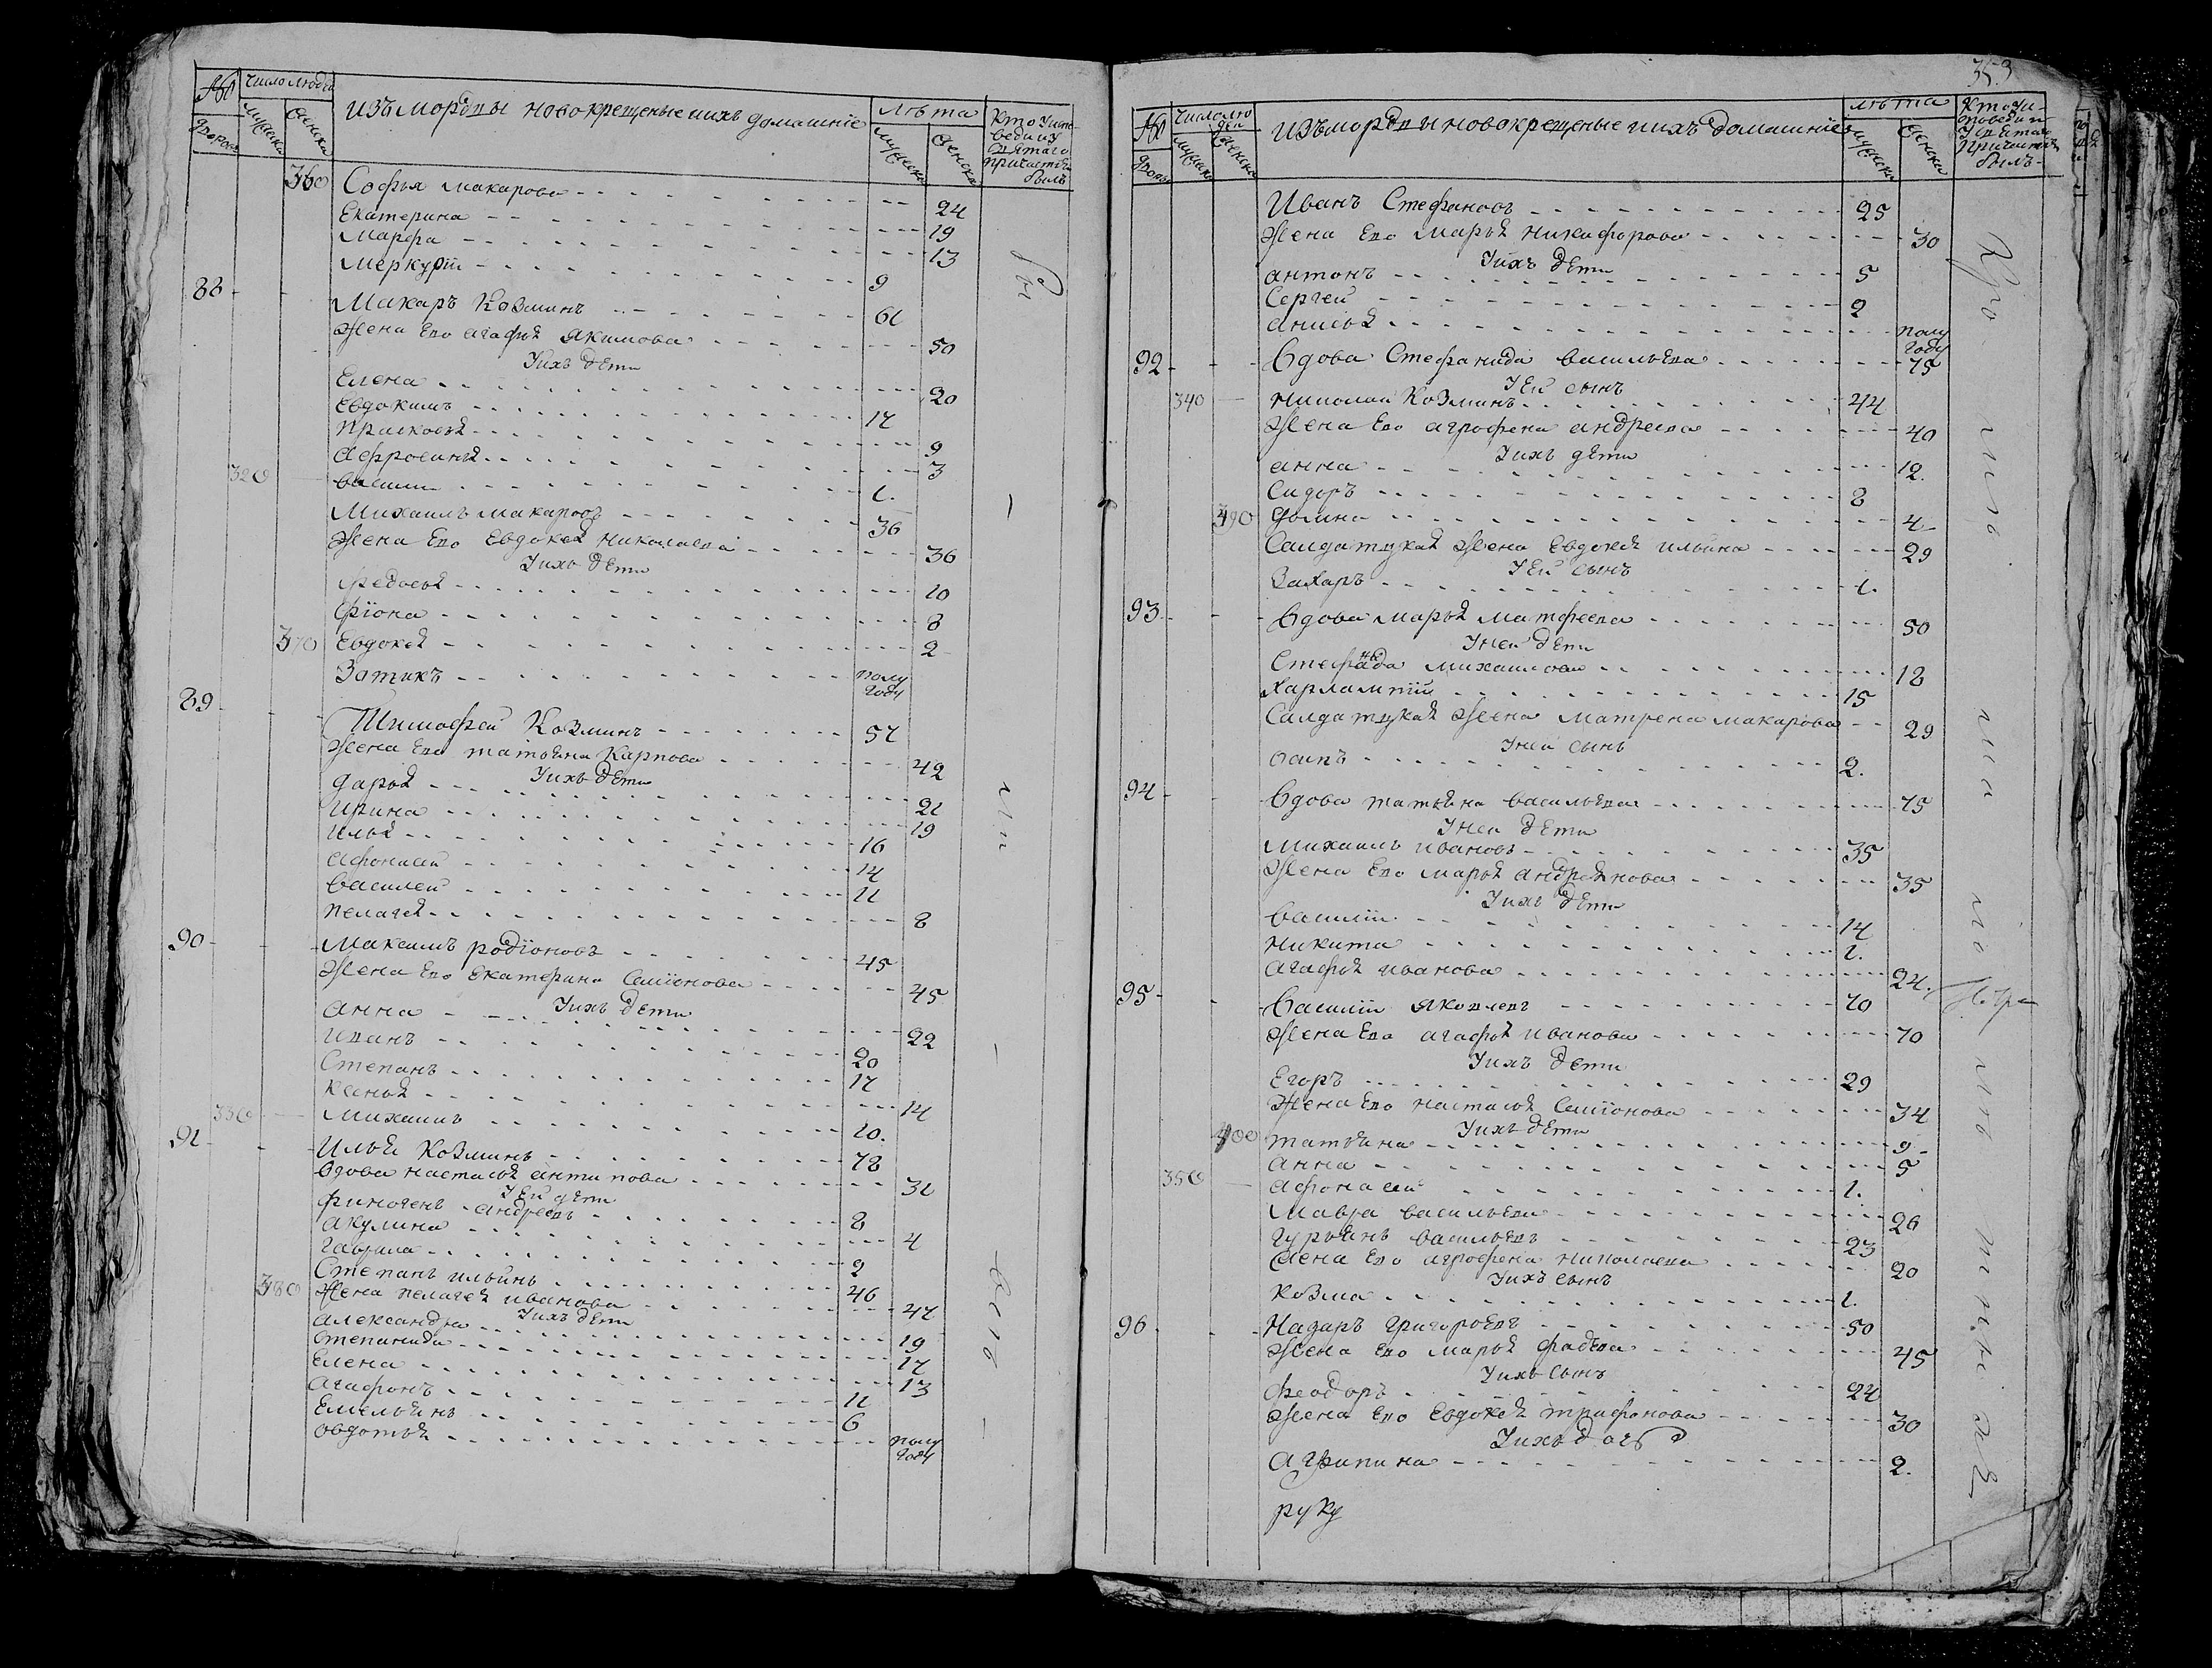 № Число людей
дворовъ мужска женска
изъ мордвы новокрещеные иихъ домашние
лѣта
мужска женска
Кто уисповеди иу святаго причастия былъ
360 Софья макарова 24
Екатерина 19
Марфа 13
Меркурїй 9
88 Макаръ Козминъ 61
Жена Ево агафья якимова 50
Уихъ дети
Елена 20
Евдокимъ 17
прасковья 9
афросинья 3
320 василий 1.
Михаилъ макаровъ 36
Жена Ево Евдокея николаева 36
Уихъ дети
федосья 10
фїона 8
370 Евдокея 2
Затикъ полугоду
89 Тимофей Козминъ 57
Жена Ево татьяна Карпова 42
Уихъ дети
дарья 21
Ирина 19
илья 16
афонасей 14
василей 11
пелагея 8
90 Максимъ родїоновъ 45
Жена Ево Екатерина Семїонова 45
Уихъ дети
анна 22
иванъ 20
Степанъ 17
Ксенья 14
330 Михаилъ 10.
91 Илья Козминъ 78
вдова настасья антипова 31
Уей дети
финогенъ андреевъ 8
акулина 4
гаврила 2
Степанъ ильинъ 46
380 Жена пелагея иванова 47
Уихъ дети
александра 19
степанида 17
Елена 13
агафонъ 11
Емельянъ 6
овдотья полугоду
353
№ Число людей
дворовъ мужска женска
изъ мордвы новокрещеные иихъ домашние
лѣта
мужска женска
Кто уисповеди и усвятаго причастия былъ
Иванъ Стефановъ 25
Жена Ево Марья никифорова 30
Уихъ дети
антонъ 5
Сергей 2
анисья полугоду
92 вдова Стефанида васильева 75
Уей сынъ
340 николай Козминъ 44
Жена Ево агрофена андреева 40
Уихъ дети
анна 12.
Сидоръ 8
390 домна 4
Салдатцкая жена Евдокея ильина 29
Уей сынъ
Захаръ 1.
93 вдова марья матфеева 50
Унеи дети
Стефанида михаилова 18
Харлампїй 15
Салдатцкая жена матрена макарова 29
Унеи сынъ
осипъ 2.
94 вдова татьяна васильева 75
Унеи дети
михаилъ ивановъ 35
Жена Ево марья андреянова 35
Уихъ дети
василїй 14
никита 1.
агафья иванова 24.
95 василїй яковлевъ 70
Жена Ево агафья иванова 70
Уихъ дети
Егоръ 29
Жена Ево настасья Семїонова 34
Уихъ дети
400 татьяна 9
анна 5
350 афонасий 1.
Мавра васильева 26
гурьянъ васильевъ 23
жена Ево агрофена николаева 20
Уихъ сынъ
Козма 1.
96 Назаръ григорьевъ 50
Жена Ево марья фадеева 45
Уихъ сынъ
феодоръ 24
Жена Ево Евдокея трифонова 30
Уихъ дочь
агрипина 2.
руку